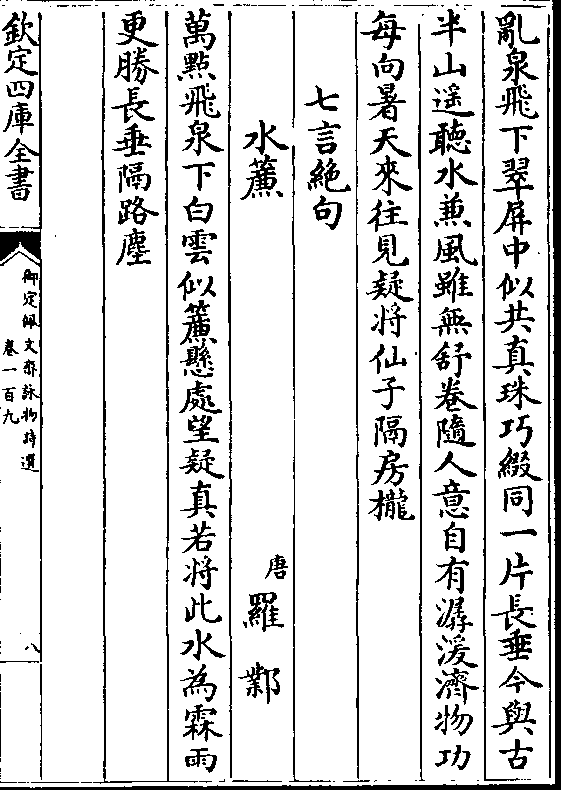 亂泉飛下翠屏中似共真珠巧綴同一片長垂今與古
半山遥聽水兼風雖無舒卷隨人意自有潺湲濟物功
每向暑天來往見疑將仙子隔房櫳
七言絶句
水簾
唐羅鄴
萬㸃飛泉下白雲似簾懸處望疑真若將此水為霖雨
更勝長垂隔路塵
欽定四庫全書
御定佩文齋詠物詩選
卷一百九
八